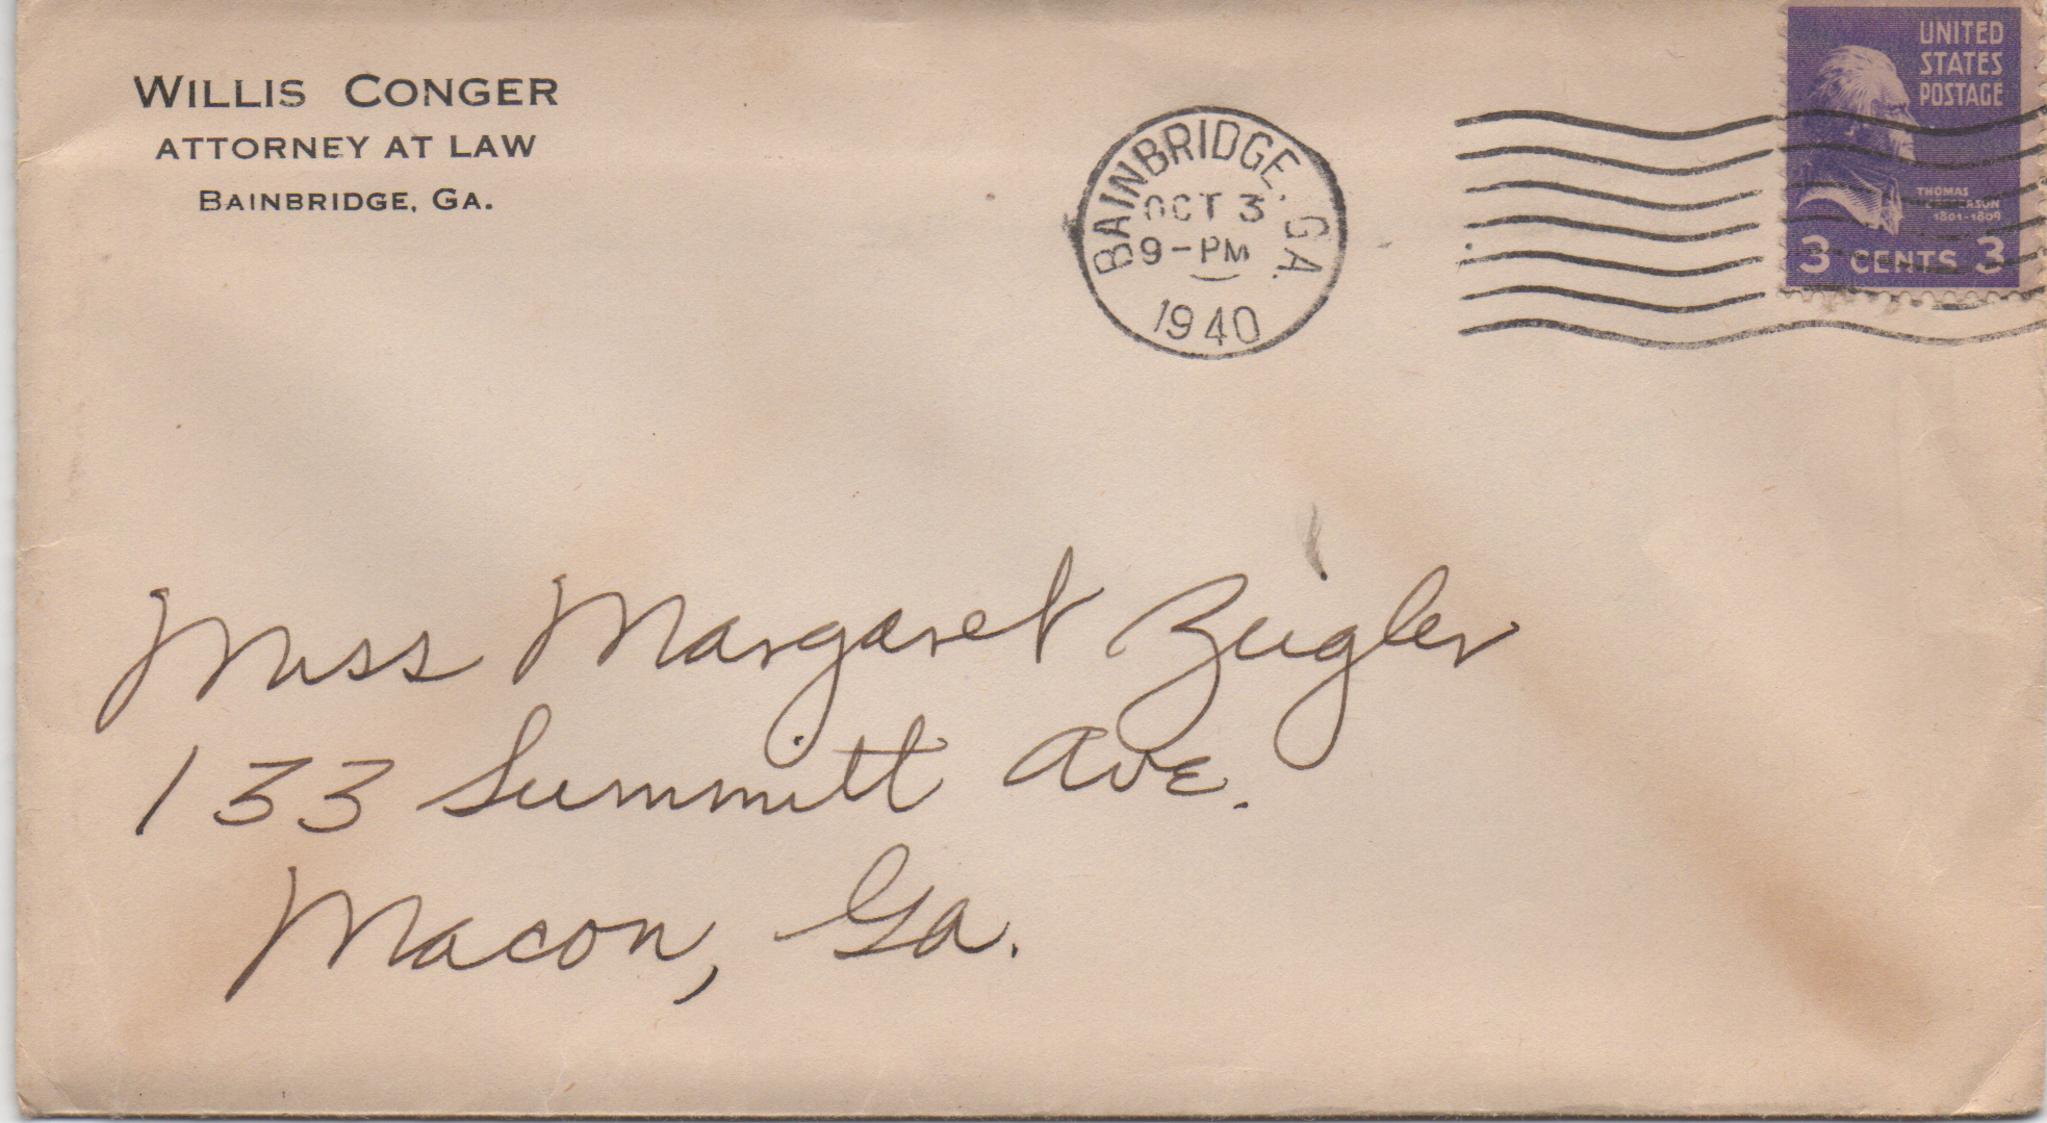 WILLIS CONGER
ATTORNEY AT LAW
BAINBRIDGE, GA.
BAINBRIDGE, GA.
OCT 3
9-PM
1940
UNITED
STATES
POSTAGE
THOMAS
JEFFERSON
1801-1809
3 CENTS 3
Miss Margaret Zeigler
133 Summitt Ave.
Macon, Ga.